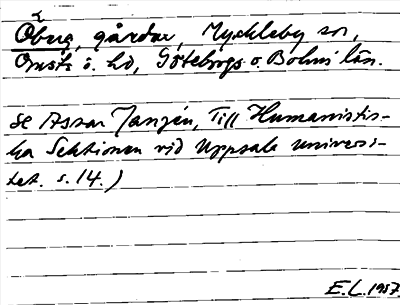 Öberg, gårdar, Myckleby sn,
Orusts ö. hd, Göteborgs o. Bohus län.
Se Assar Janzén, Till Humanistis-
ka Sektionen vid Uppsala universi-
tet. s. 14.)
E.L. 1957.